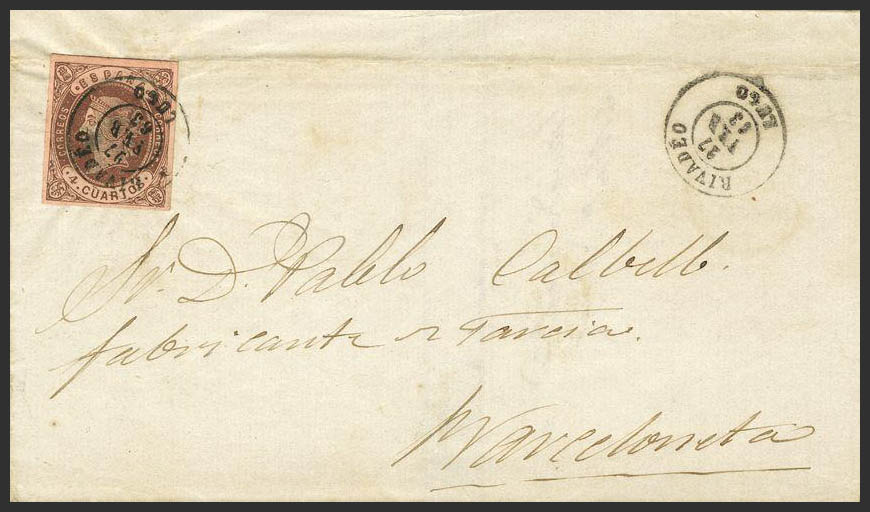 ESPAÑA
CORREOS
4. CUARTOS
RIVADÉO
27
FEB
63
LUGO
RIVADÉO
27
FEB
63
LUGO
Sr. D. Pablo Calbell.
fabricante
Barceloneta